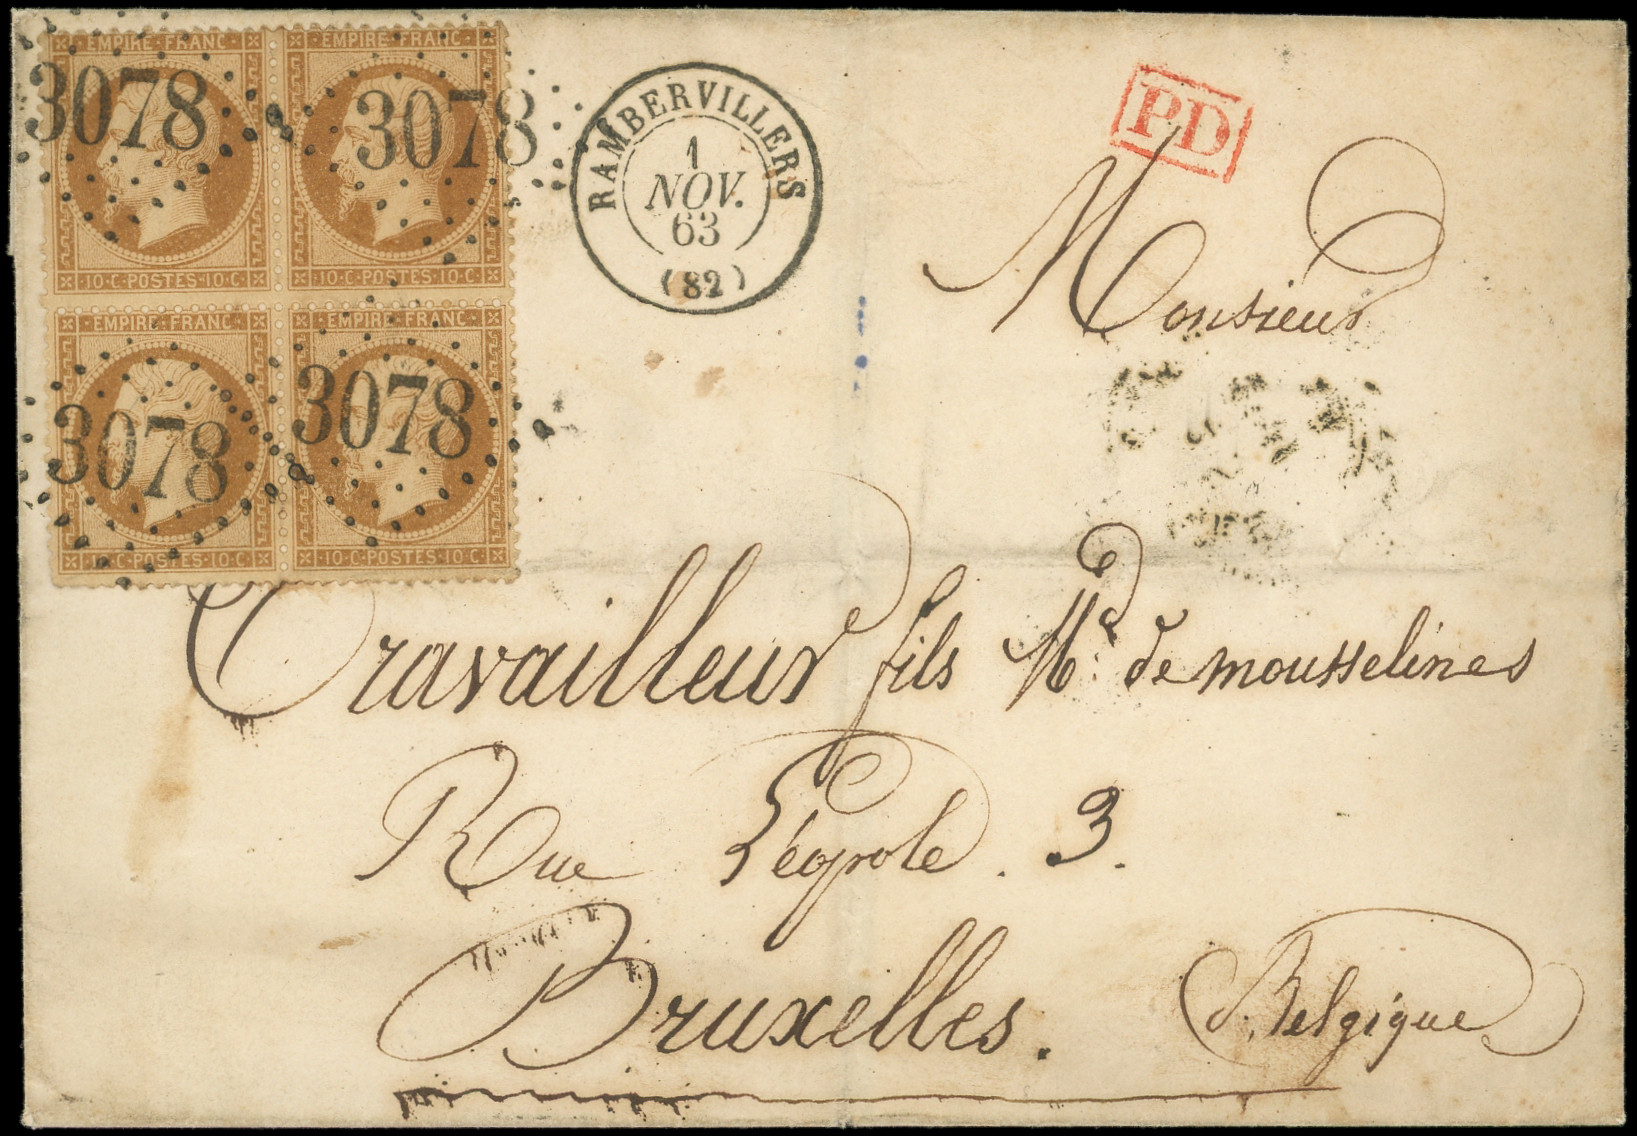 EMPIRE·FRANC· EMPIRE·FRANC·
3078 3078
·10·C·POSTES·10·C· ·10·C·POSTES·10·C·
EMPIRE·FRANC· EMPIRE·FRANC·
3078 3078
·10·C·POSTES·10·C· ·10·C·POSTES·10·C·
RAMBERVILLERS
1
NOV.
63
(82)
PD
Monsieur
Travailleur fils Md. de mousselines
Rue Léopole. 3.
Bruxelles.
Belgique